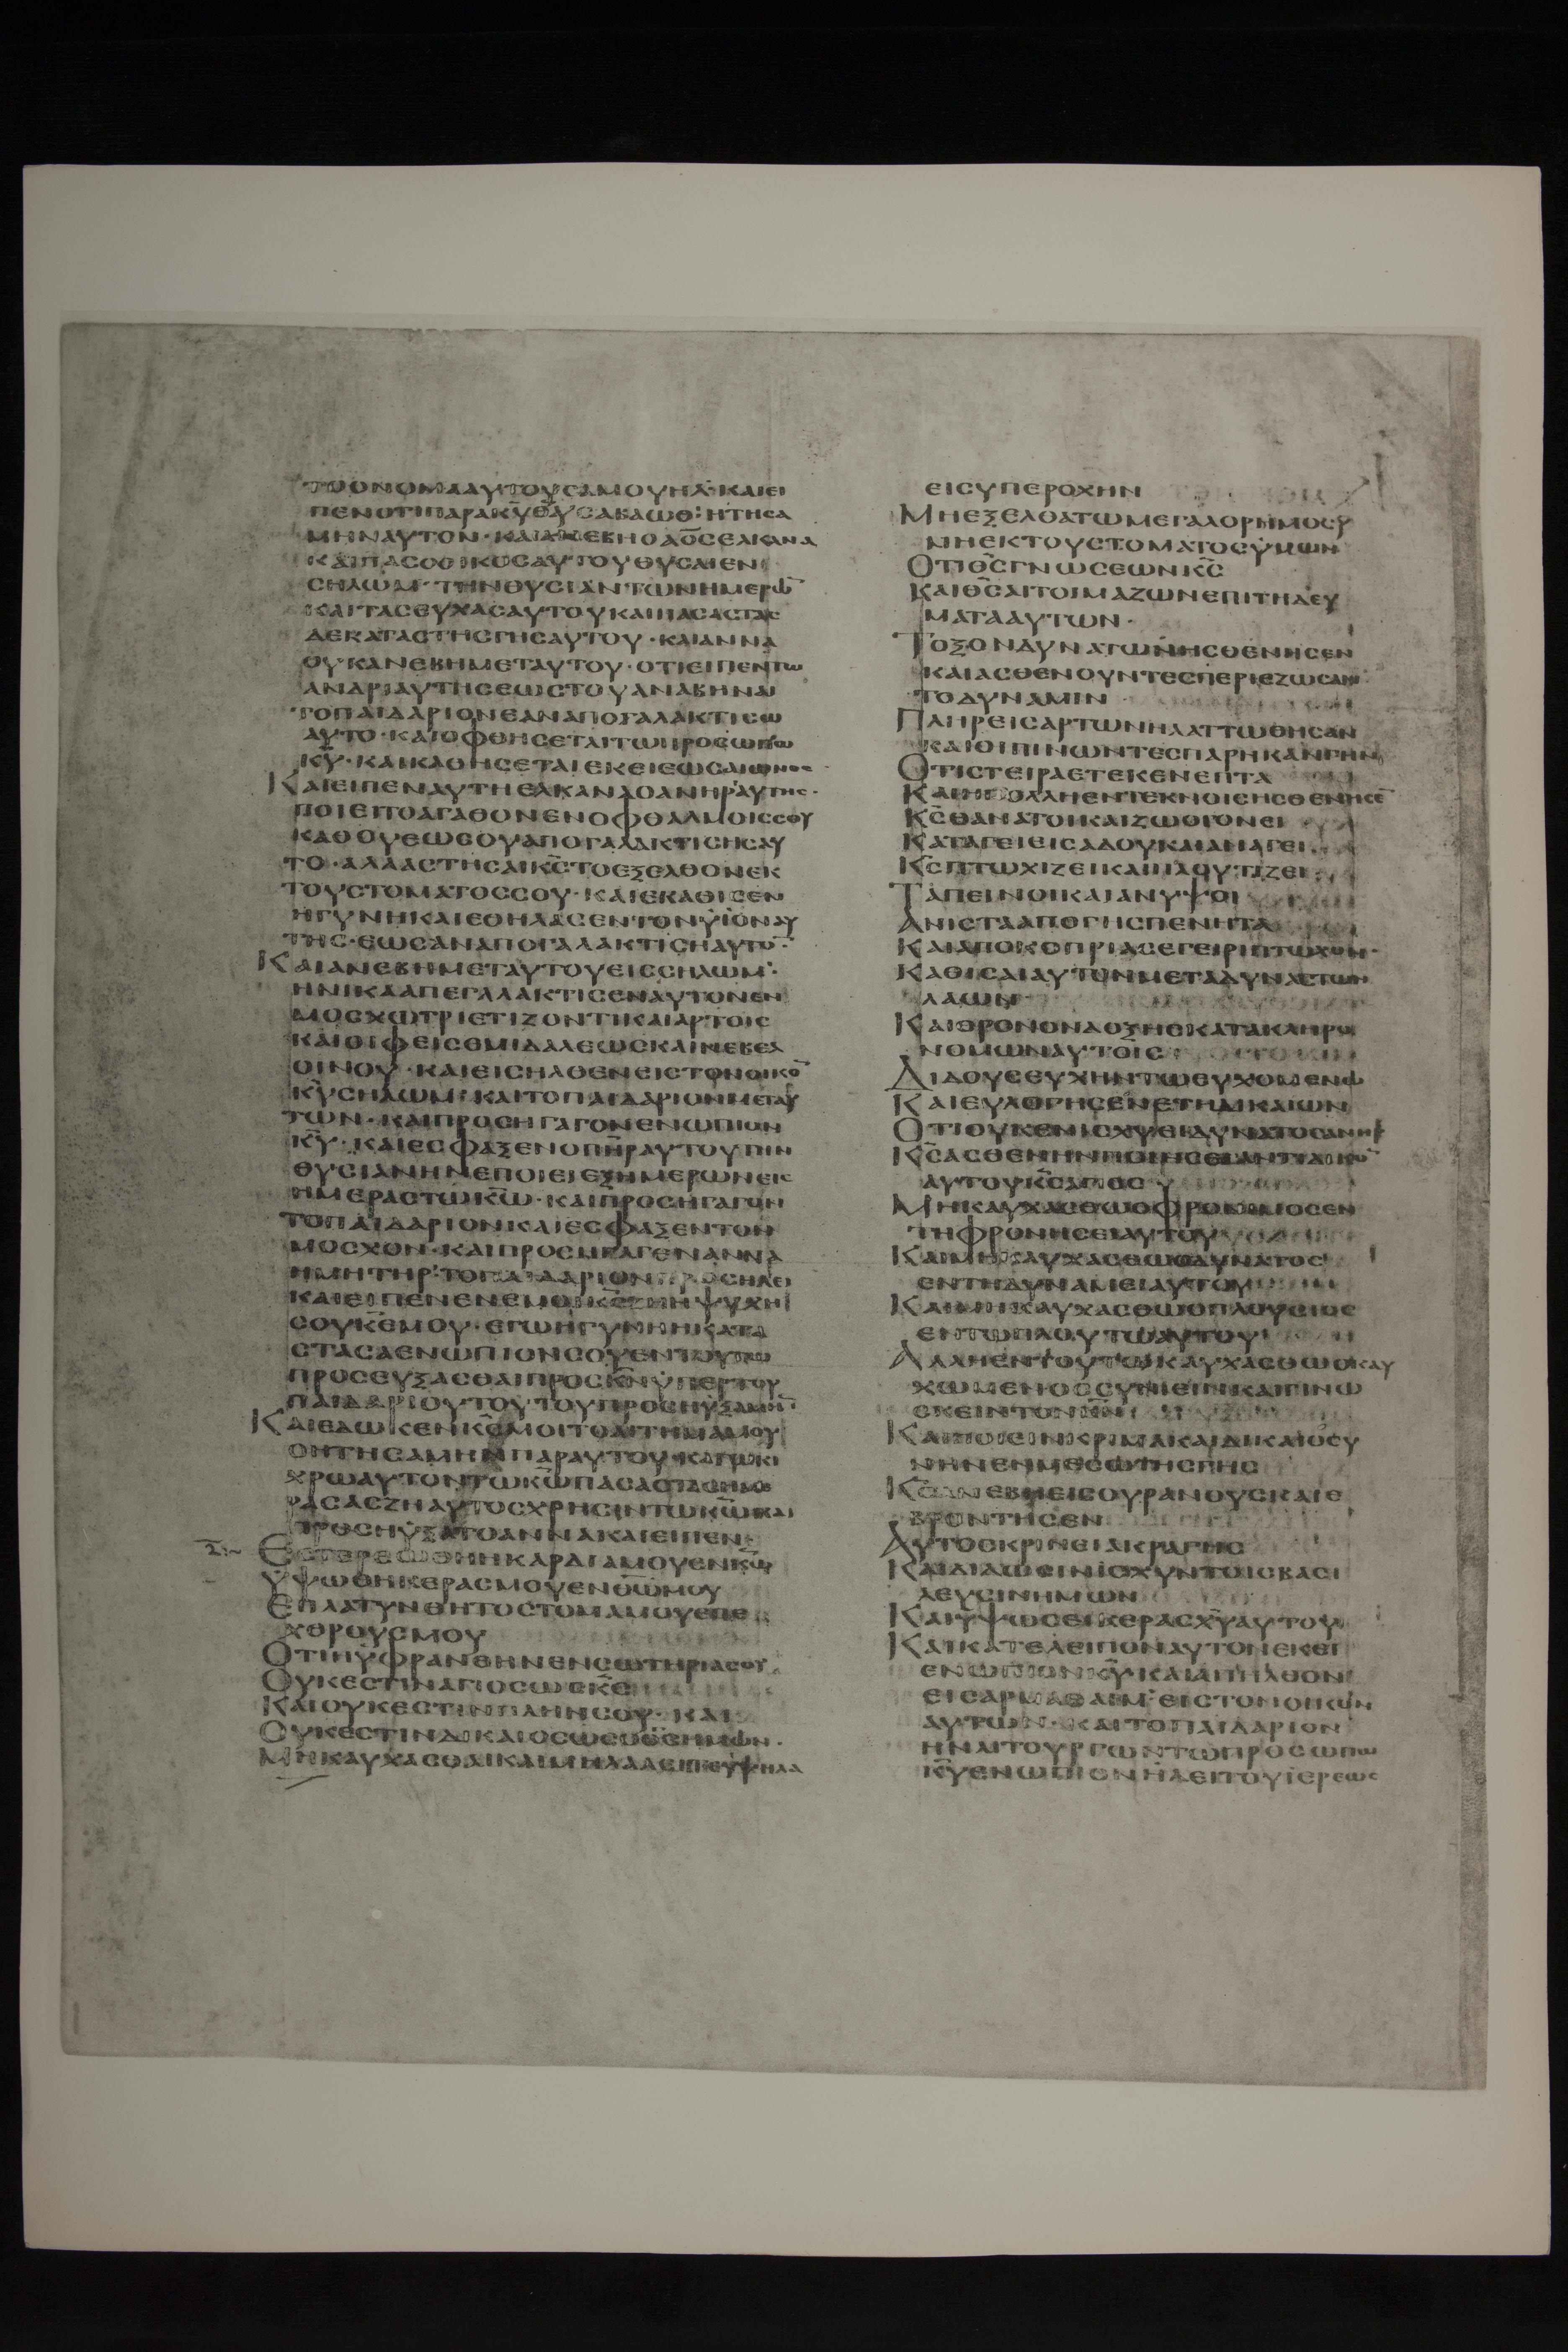 ΤΟΟΝΟΜΑΑΥΤΟΥCΑΜΟΥΗΛ·ΚΑΙΕΙ
ΠΕΝΟΤΙΠΑΡΑΚ̅Υ̅Θ̅Υ̅CΑΒΑΩΘ:ΗΤΗCΑ
ΜΗΝΑΥΤΟΝ·ΚΑΙΑΝΕΒΗΟΑΟ̅CΕΛΚΑΝΑ
ΚΑΙΠΑCΟΟΙΚΟCΑΥΤΟΥΘΥCΑΙΕΝ
CΗΛΩΜ·ΤΗΝΘΥCΙΑΝΤΩΝΗΜΕΡΩ̅
ΚΑΙΤΑCΕΥΧΑCΑΥΤΟΥΚΑΙΠΑCΑCΤΑC
ΔΕΚΑΤΑCΤΗCΓΗCΑΥΤΟΥ·ΚΑΙΑΝΝΑ
ΟΥΚΑΝΕΒΗΜΕΤΑΥΤΟΥ·ΟΤΙΕΙΠΕΝΤΩ
ΑΝΔΡΙΑΥΤΗCΕΩCΤΟΥΑΝΑΒΗΝΑΙ
ΤΟΠΑΙΔΑΡΙΟΝΕΑΝΑΠΟΓΑΛΑΚΤΙCΩ
ΑΥΤΟ·ΚΑΙΟΦΘΗCΕΤΑΙΤΩΠΡΟCΩΠΩ
Κ̅Υ̅·ΚΑΙΚΑΘΗCΕΤΑΙΕΚΕΙΕΩCΑΙΩΝΟC
ΚΑΙΕΙΠΕΝΑΥΤΗΕΛΚΑΝΑΟΑΝΗΡΑΥΤΗC·
ΠΟΙΕΙΤΟΑΓΑΘΟΝΕΝΟΦΘΑΛΜΟΙCCΟΥ
ΚΑΘΟΥΕΩCΟΥΑΠΟΓΑΛΑΚΤΙCΗCΑΥ
ΤΟ·ΑΛΛΑCΤΗCΑΙΚ̅C̅ΤΟΕΞΕΛΘΟΝΕΚ
ΤΟΥCΤΟΜΑΤΟCCΟΥ·ΚΑΙΕΚΑΘΙCΕΝ
ΗΓΥΝΗΚΑΙΕΘΗΛΑCΕΝΤΟΝΫΙΟΝΑΥ
ΤΗC·ΕΩCΑΝΑΠΟΓΑΛΑΚΤΙCΗΑΥΤΟ̅·
ΚΑΙΑΝΕΒΗΜΕΤΑΥΤΟΥΕΙCCΗΛΩΜ·
ΗΝΙΚΑΑΠΕΓΑΛΑΚΤΙCΕΝΑΥΤΟΝΕΝ
ΜΟCΧΩΤΡΙΕΤΙΖΟΝΤΙΚΑΙΑΡΤΟΙC
ΚΑΙΟΙΦΕΙCΕΜΙΔΑΛΕΩCΚΑΙΝΕΒΕΛ
ΟΙΝΟΥ·ΚΑΙΕΙCΗΛΘΕΝΕΙCΤΟΝΟΙΚΟ̅
Κ̅Υ̅CΗΛΩΜ·ΚΑΙΤΟΠΑΙΔΑΡΙΟΝΜΕΤΑΥ
ΤΩΝ·ΚΑΙΠΡΟCΗΓΑΓΟΝΕΝΩΠΙΟΝ
Κ̅Υ̅·ΚΑΙΕCΦΑΞΕΝΟΠ̅Η̅Ρ̅ΑΥΤΟΥΤΗΝ
ΘΥCΙΑΝΗΝΕΠΟΙΕΙΕΞΗΜΕΡΩΝΕΙC
ΗΜΕΡΑCΤΩΚ̅Ω̅·ΚΑΙΠΡΟCΗΓΑΓΟΝ
ΤΟΠΑΙΔΑΡΙΟΝΚΑΙΕCΦΑΞΕΝΤΟΝ
ΜΟCΧΟΝ·ΚΑΙΠΡΟCΗΓΑΓΕΝΑΝΝΑ
ΗΜΗΤΗΡ·ΤΟΠΑΙΔΑΡΙΟΝΠΡΟCΗΛΕΙ
ΚΑΙΕΙΠΕΝΕΝΕΜΟΙΚ̅Ε̅ΖΗΗΨΥΧΗ
CΟΥΚ̅Ε̅ΜΟΥ·ΕΓΩΗΓΥΝΗΗΚΑΤΑ
CΤΑCΑΕΝΩΠΙΟΝCΟΥΕΝΤΟΥΤΩ
ΠΡΟCΕΥΞΑCΘΑΙΠΡΟCΚ̅Ν̅ΫΠΕΡΤΟΥ
ΠΑΙΔΑΡΙΟΥΤΟΥΤΟΥΠΡΟCΗΥΞΑΜΗ̅·
ΚΑΙΕΔΩΚΕΝΚ̅C̅ΜΟΙΤΟΑΙΤΗΜΑΜΟΥ
ΟΗΤΗCΑΜΗΝΠΑΡΑΥΤΟΥ·ΚΑΓΩΚΙ
ΧΡΩΑΥΤΟΝΤΩΚ̅Ω̅ΠΑCΑCΤΑCΗΜΕ
ΡΑCΑCΖΗΑΥΤΟCΧΡΗCΙΝΤΩΚ̅Ω̅ΚΑΙ
ΠΡΟCΗΥΞΑΤΟΑΝΝΑΚΑΙΕΙΠΕΝ
ΕCΤΕΡΕΩΘΗΗΚΑΡΔΙΑΜΟΥΕΝΚ̅Ω̅
ΫΨΩΘΗΚΕΡΑCΜΟΥΕΝΘ̅Ω̅ΜΟΥ
ΕΠΛΑΤΥΝΘΗΤΟCΤΟΜΑΜΟΥΕΠΕ
ΧΘΡΟΥCΜΟΥ
ΟΤΙΗΥΦΡΑΝΘΗΝΕΝCΩΤΗΡΙΑCΟΥ·
ΟΥΚΕCΤΙΝΑΓΙΟCΩCΚ̅Ε̅
ΚΑΙΟΥΚΕCΤΙΝΠΛΗΝCΟΥ·ΚΑΙ
ΟΥΚΕCΤΙΝΔΙΚΑΙΟCΩCΟΘ̅C̅ΗΜΩΝ·
ΜΗΚΑΥΧΑCΘΑΙΚΑΙΜΗΛΑΛΕΙΤΕΥΨΗΛΑ
ΕΙCΥΠΕΡΟΧΗΝ
ΜΗΕΞΕΛΘΑΤΩΜΕΓΑΛΟΡΗΜΟCΥ
ΝΗΕΚΤΟΥCΤΟΜΑΤΟCΫΜΩΝ
ΟΤΙΘ̅C̅ΓΝΩCΕΩΝΚ̅C̅
ΚΑΙΘ̅C̅ΑΙΤΟΙΜΑΖΩΝΕΠΙΤΗΔΕΥ
ΜΑΤΑΑΥΤΩΝ·
ΤΟΞΟΝΔΥΝΑΤΩΝΗCΘΕΝΗCΕΝ
ΚΑΙΑCΘΕΝΟΥΝΤΕCΠΕΡΙΕΖΩCΑΝ
ΤΟΔΥΝΑΜΙΝ
ΠΛΗΡΕΙCΑΡΤΩΝΗΛΑΤΤΩΘΗCΑΝ
ΚΑΙΟΙΠΙΝΩΝΤΕCΠΑΡΗΚΑΝΓΗΝ
ΟΤΙCΤΕΙΡΑΕΤΕΚΕΝΕΠΤΑ
ΚΑΙΗΠΟΛΛΗΕΝΤΕΚΝΟΙCΗCΘΕΝΗCΕ̅
Κ̅C̅ΘΑΝΑΤΟΙΚΑΙΖΩΟΓΟΝΕΙ
ΚΑΤΑΓΕΙΕΙCΑΔΟΥΚΑΙΑΝΑΓΕΙ
Κ̅C̅ΠΤΩΧΙΖΕΙΚΑΙΠΛΟΥΤΙΖΕΙ
ΤΑΠΕΙΝΟΙΚΑΙΑΝΥΨΟΙ
ΑΝΙCΤΑΑΠΟΓΗCΠΕΝΗΤΑ
ΚΑΙΑΠΟΚΟΠΡΙΑCΕΓΕΙΡΙΠΤΩΧΟΝ·
ΚΑΘΙCΑΙΑΥΤΟΝΜΕΤΑΔΥΝΑCΤΩΝ
ΛΑΩΝ
ΚΑΙΘΡΟΝΟΝΔΟΞΗCΚΑΤΑΚΛΗΡΟ
ΝΟΜΩΝΑΥΤΟΙC
ΔΙΔΟΥCΕΥΧΗΝΤΩΕΥΧΟΜΕΝΩ
ΚΑΙΕΥΛΟΓΗCΕΝΕΤΗΔΙΚΑΙΩΝ
ΟΤΙΟΥΚΕΝΙCΧΥΕΙΔΥΝΑΤΟCΑΝΗΡ
Κ̅C̅ΑCΘΕΝΗΝΠΟΙΗCΕΙΑΝΤΙΔΙΚΟ̅
ΑΥΤΟΥΚ̅C̅ΑΓΙΟC
ΜΗΚΑΥΧΑCΘΩΟΦΡΟΝΙΜΟCΕΝ
ΤΗΦΡΟΝΗCΕΙΑΥΤΟΥ
ΚΑΙΜΗΚΑΥΧΑCΘΩΟΔΥΝΑΤΟC
ΕΝΤΗΔΥΝΑΜΕΙΑΥΤΟΥ
ΚΑΙΜΗΚΑΥΧΑCΘΩΟΠΛΟΥCΙΟC
ΕΝΤΩΠΛΟΥΤΩΑΥΤΟΥ
ΑΛΛΗΕΝΤΟΥΤΩΚΑΥΧΑCΘΩΟΚΑΥ
ΧΩΜΕΝΟCCΥΝΙΕΙΝΚΑΙΓΙΝΩ
CΚΕΙΝΤΟΝΚ̅Ν̅
ΚΑΙΠΟΙΕΙΝΚΡΙΜΑΚΑΙΔΙΚΑΙΟCΥ
ΝΗΝΕΝΜΕCΩΤΗCΓΗC
Κ̅C̅ΑΝΕΒΗΕΙCΟΥΡΑΝΟΥCΚΑΙΕ
ΒΡΟΝΤΗCΕΝ
ΑΥΤΟCΚΡΙΝΕΙΑΚΡΑΓΗC
ΚΑΙΔΙΔΩCΙΝΙCΧΥΝΤΟΙCΒΑCΙ
ΛΕΥCΙΝΗΜΩΝ
ΚΑΙΫΨΩCΕΙΚΕΡΑCΧ̅Υ̅ΑΥΤΟΥ
ΚΑΙΚΑΤΕΛΕΙΠΟΝΑΥΤΟΝΕΚΕΙ
ΕΝΩΠΙΟΝΚ̅Υ̅·ΚΑΙΑΠΗΛΘΟΝ
ΕΙCΑΡΜΑΘΑΙΜ·ΕΙCΤΟΝΟΙΚΟΝ
ΑΥΤΩΝ·ΚΑΙΤΟΠΑΙΔΑΡΙΟΝ
ΗΝΛΙΤΟΥΡΓΩΝΤΩΠΡΟCΩΠΩ
Κ̅Υ̅ΕΝΩΠΙΟΝΗΛΕΙΤΟΥΙΕΡΕΩC